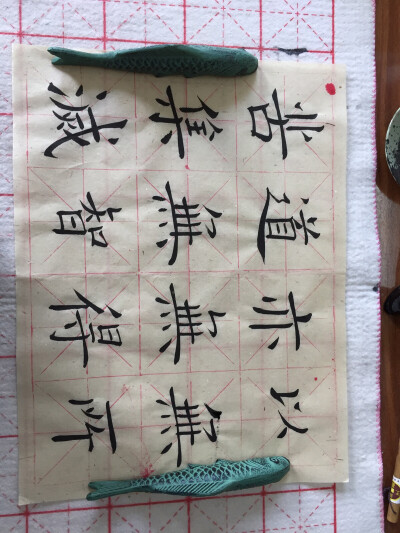 苦集滅
道無智
亦無得
以無所